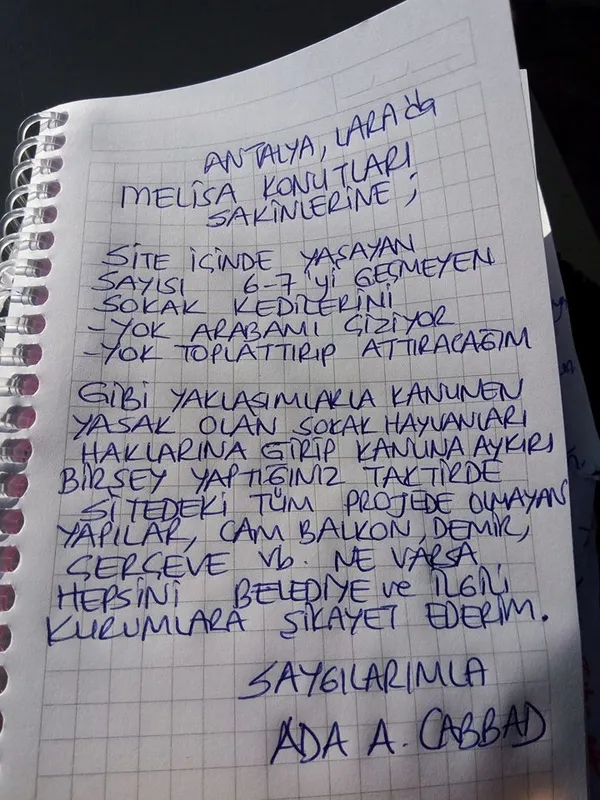 ANTALYA, LARA'da
MELİSA KONUTLARI
SAKİNLERİNE ;
SİTE İÇİNDE YAŞAYAN
SAYISI 6-7'yi GEŞMEYEN
SOKAK KEDİLERİNİ
-YOK ARABAMI ÇİZİYOR
-YOK TOPLATTIRIP ATTIRACAĞIM
GİBİ YAKLAŞIMLARLA KANUNEN
YASAK OLAN SOKAK HAYVANLARI
HAKLARINA GİRİP KANUNA AYKIRI
BİRŞEY YAPTIĞINIZ TAKTİRDE
SİTEDEKİ TÜM PROJEDE OLMAYAN
YAPILAR, CAM BALKON, DEMİR,
ÇERÇEVE vb. NE VARSA,
HEPSİNİ BELEDİYE ve İLGİLİ
KURUMLARA ŞİKAYET EDERİM.
SAYGILARIMLA
ADA A. CABBAD